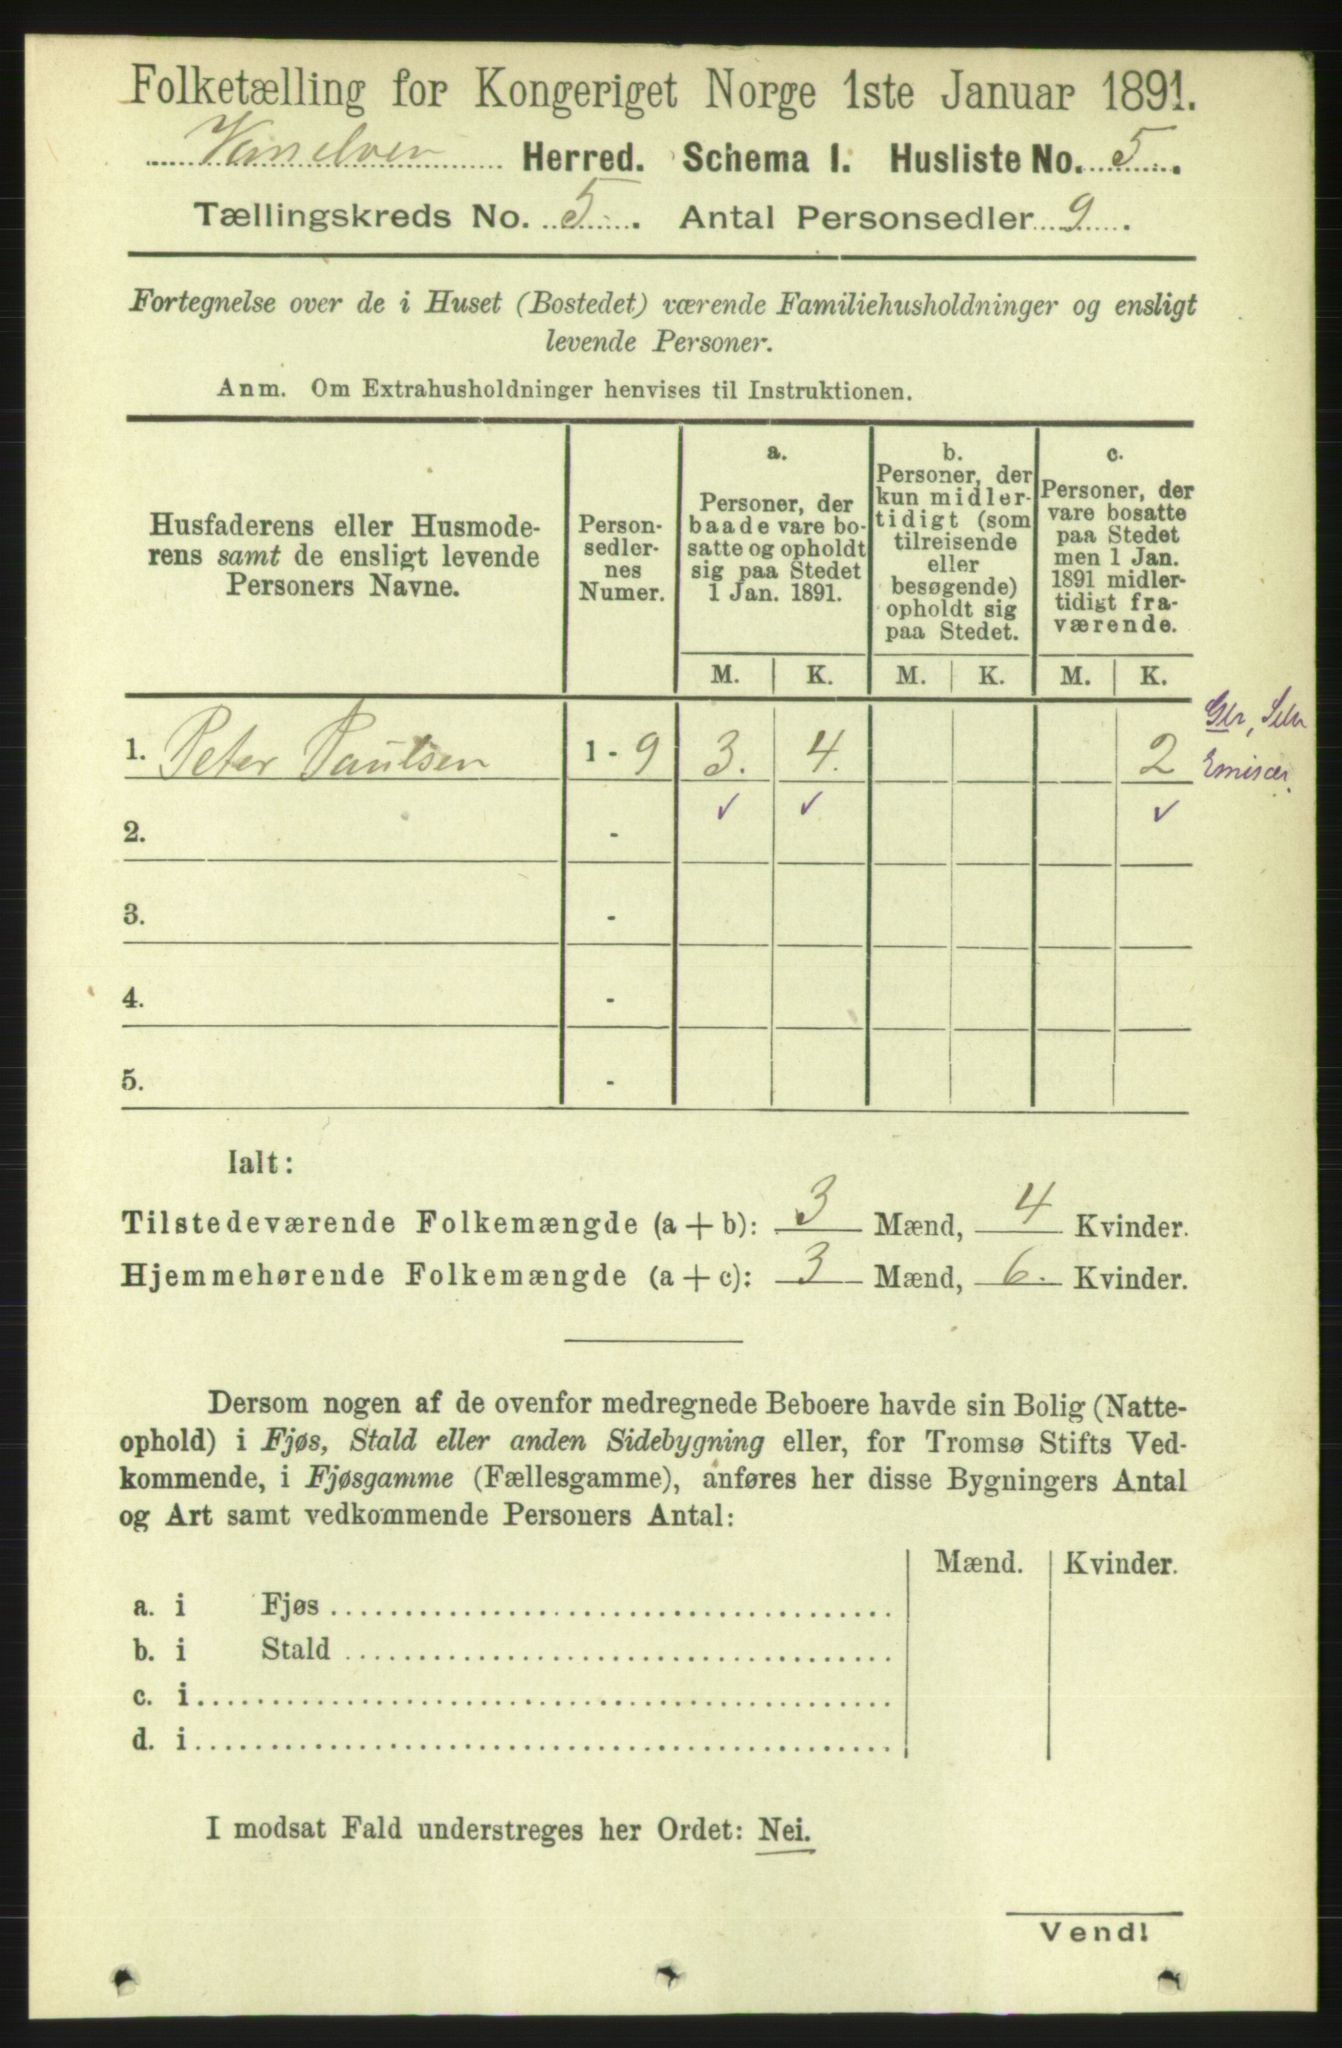 Folketælling for Kongeriget Norge 1ste Januar 1891.
Vanelven Herred. Schema 1. Husliste No. 5.
Tællingskreds No. 5. Antal Personsedler 9.
Fortegnelse over de i Huset (Bostedet) værende Familiehusholdninger og ensligt
levende Personer.
Anm. Om Extrahusholdninger henvises til Instruktionen.
Husfaderens eller Husmode-
rens samt de ensligt levende
Personers Navne.
Person-
sedler-
nes
Numer.
a.
Personer, der
baade vare bo-
satte og opholdt
sig paa Stedet
1 Jan. 1891.
b.
Personer, der
kun midler-
tidigt (som
tilreisende
eller
besøgende)
opholdt sig
paa Stedet.
c.
Personer, der
vare bosatte
paa Stedet
men 1 Jan.
1891 midler-
tidigt fra-
værende.
M. K. M. K. M. K.
1. Peter Paulsen 1 - 9 3. 4. 2
✓ ✓ ✓
2. -
3. -
4. -
5. -
Ialt:
Tilstedeværende Folkemængde (a + b): 3 Mænd, 4 Kvinder.
Hjemmehørende Folkemængde (a + c): 3 Mænd, 6. Kvinder.
Dersom nogen af de ovenfor medregnede Beboere havde sin Bolig (Natte-
ophold) i Fjøs, Stald eller anden Sidebygning eller, for Tromsø Stifts Ved-
kommende, i Fjøsgamme (Fællesgamme), anføres her disse Bygningers Antal
og Art samt vedkommende Personers Antal:
Mænd. Kvinder.
a. i Fjøs
b. i Stald
c. i
d. i
I modsat Fald understreges her Ordet: Nei.
Vend!